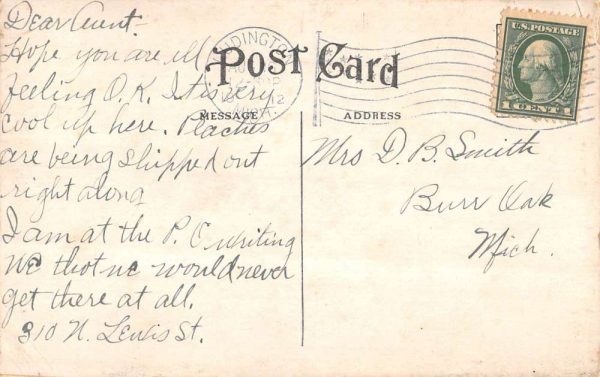 Dear Aunt.
Hope you are all
feeling O.K. It is very
cool up here. Peaches
are being shipped out
right along
I am at the P. C writing
we thot we would never
get there at all.
310 N. Lewis St.
Post Card
MESSAGE
ADDRESS
DINGTON
12
MICH.
U.S. POSTAGE
1 CENT 1
Mrs D. B. Smith
Burr Oak
Mich.